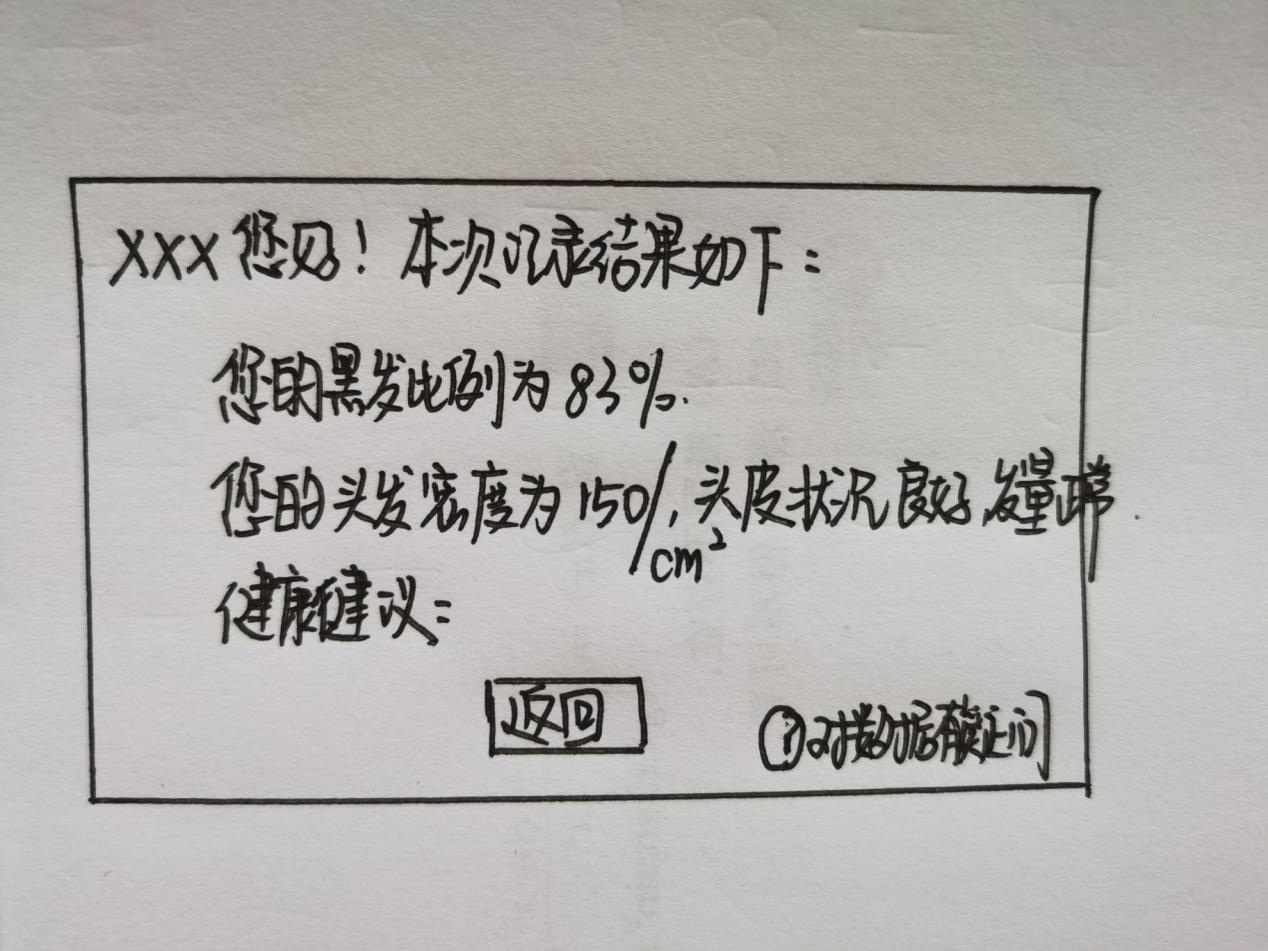 XXX您好！本次记录结果如下：
您的黑发比例为83%.
您的头发密度为150/cm²，头皮状况良好，发量正常.
健康建议：
返回
?对数据有疑问